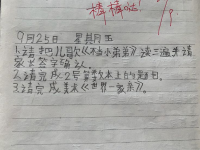 棒棒哒!
9月25日 星期五
1.请把儿歌《小弟弟》读三遍并请
家长签字确认。
2.请完成2号本上的题目。
3.请完成美术《世界一家亲》。